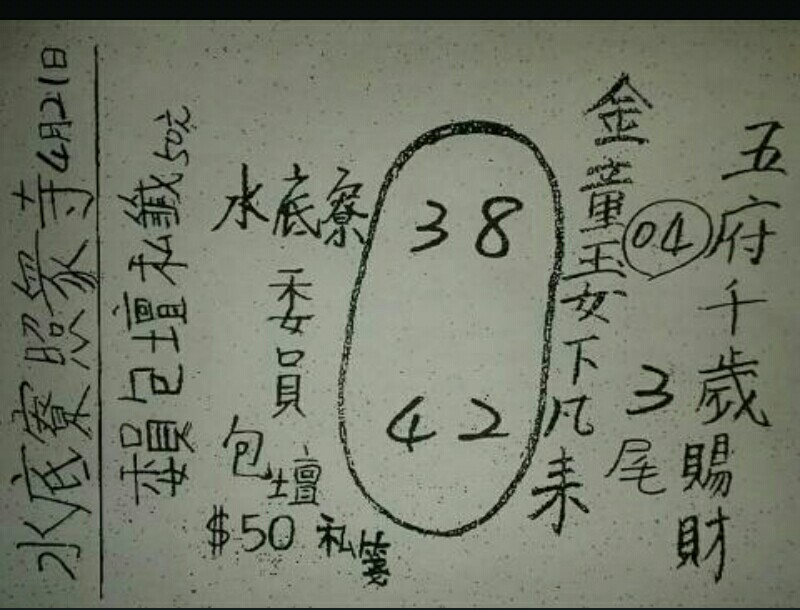 五府千歲賜財
04
3尾
金童玉女下凡来
38
42
水底寮
委員
包壇
$50 私
委員包壇私籤50元
水底寮照眾寺4月21日